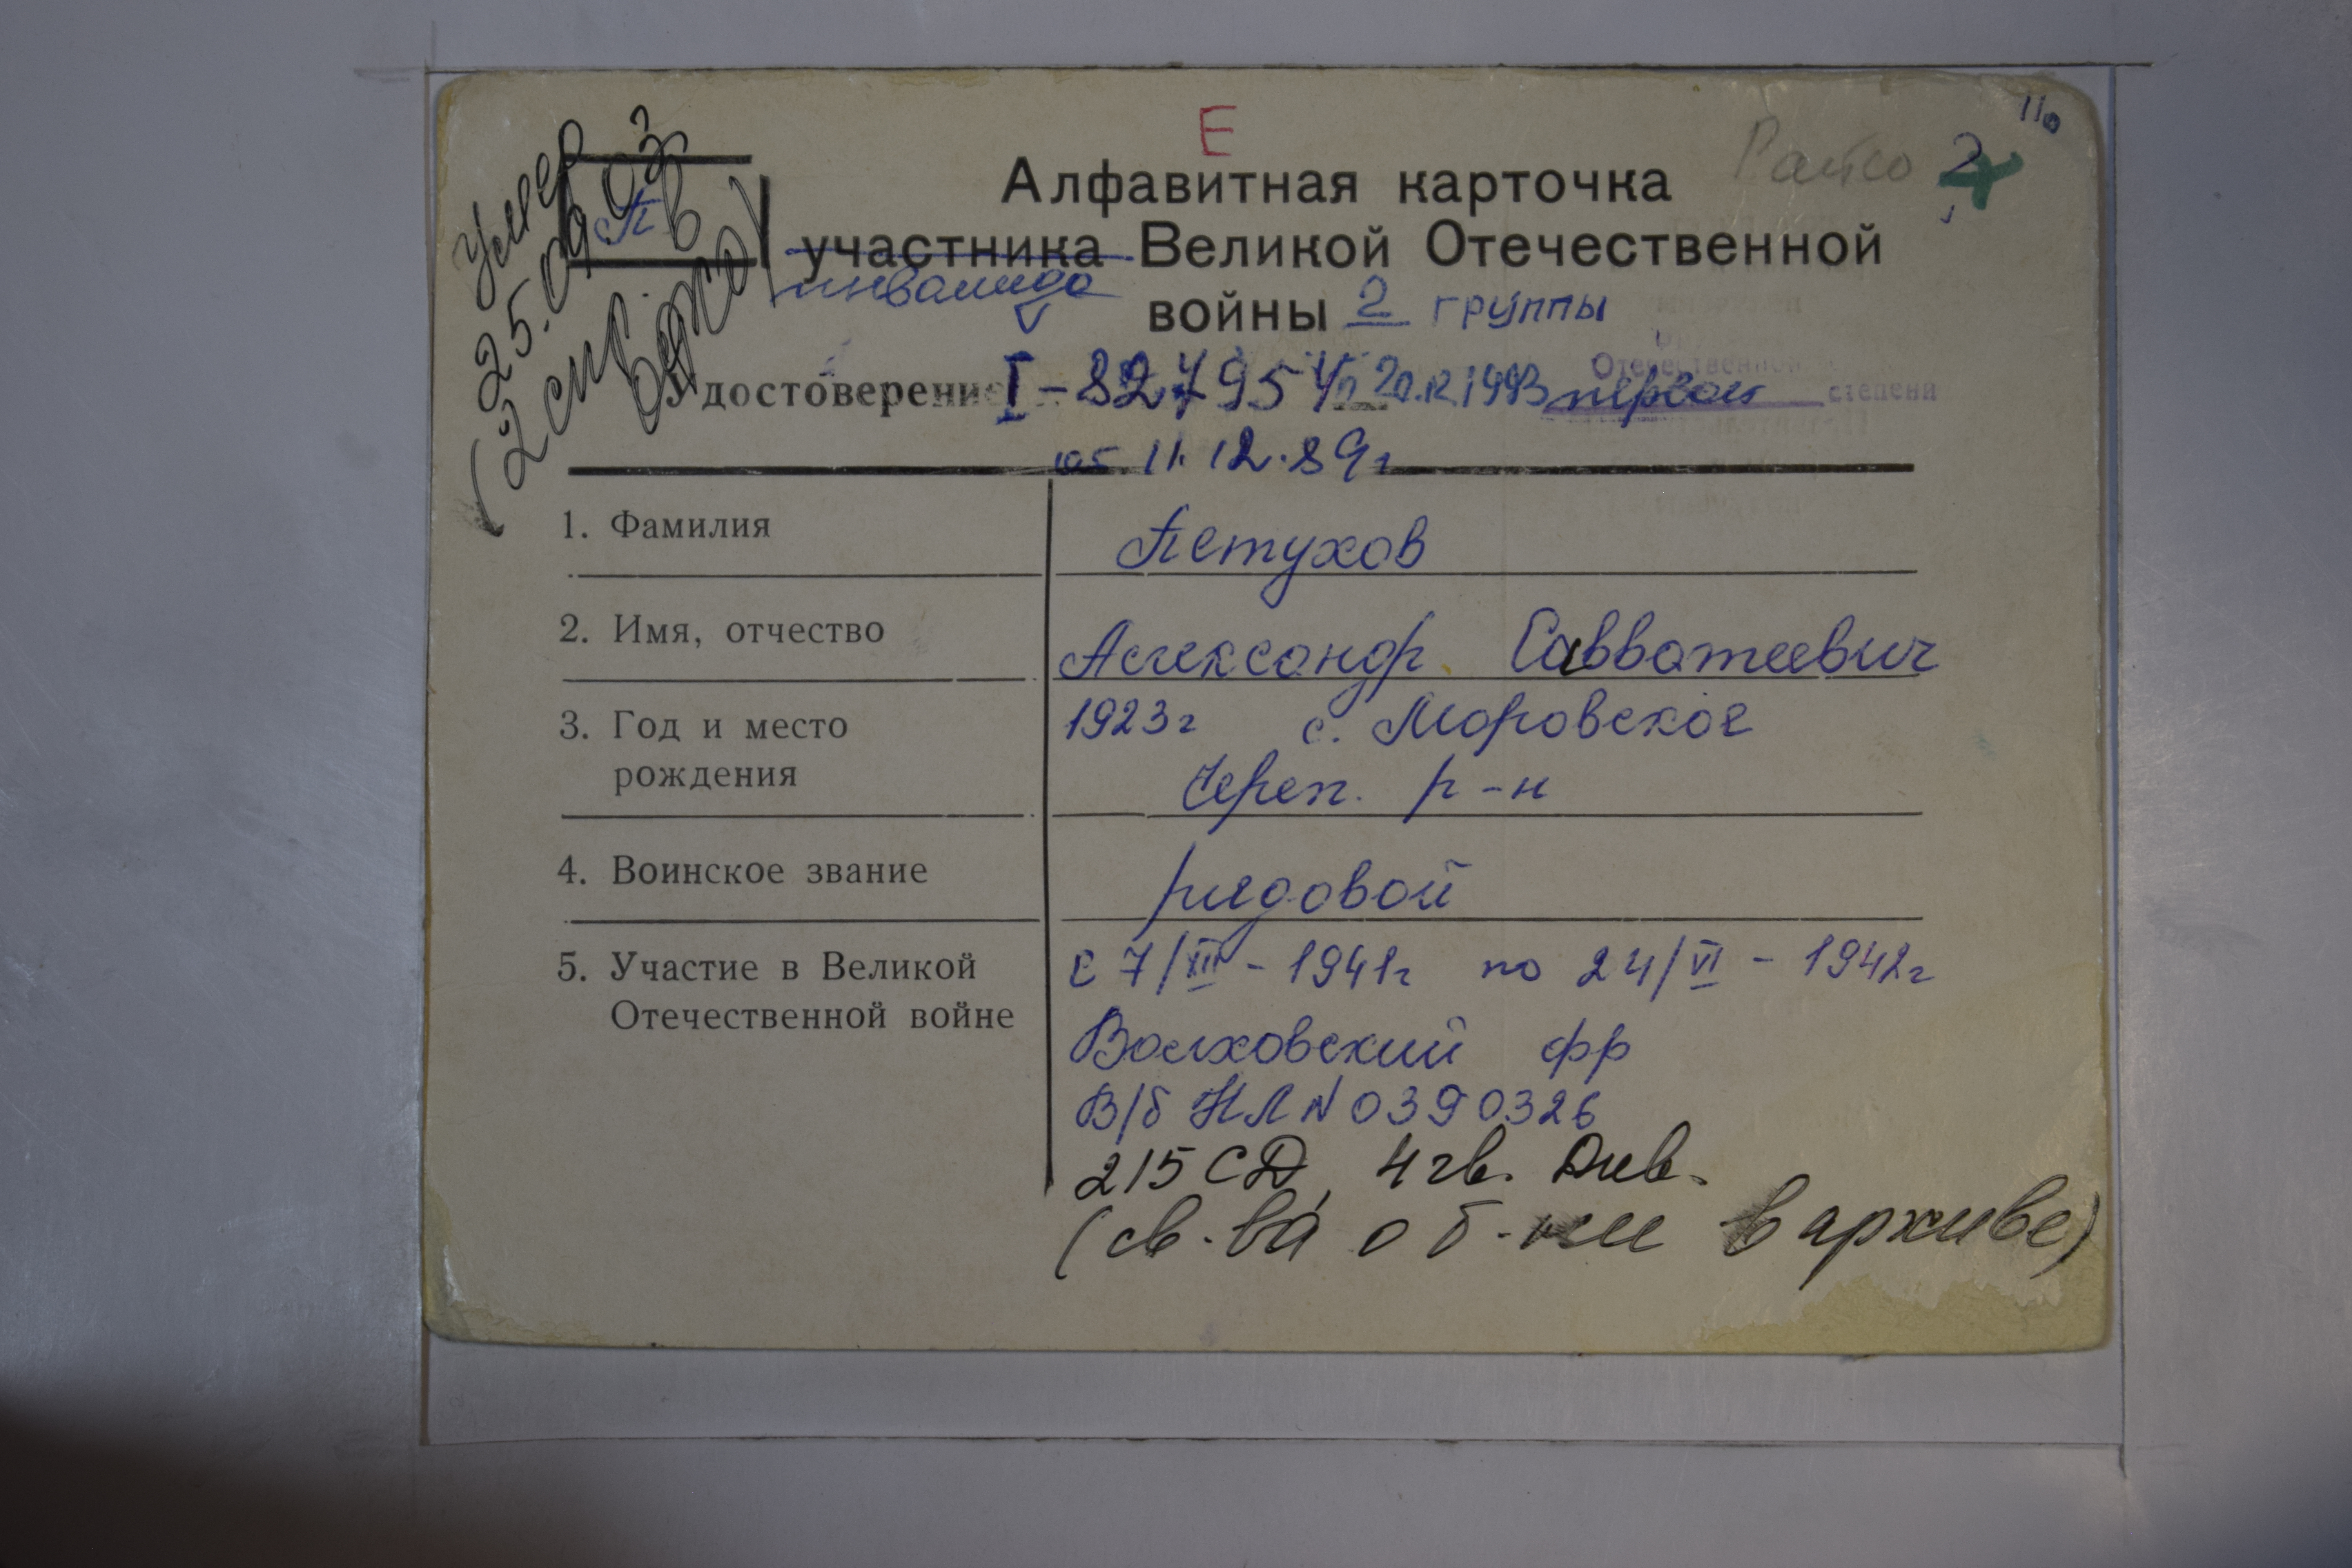 Е
11
Алфавитная карточка
2
участника Великой Отечественной
инвалида
войны 2 группы
умер
25.09.03
П
(2 спр. в
Удостоверение I-827954 20.12.1993 первой степени
Отечественной
от 11.12.89г
1. Фамилия Петухов
2. Имя, отчество Александр Савватеевич
3. Год и место 1923г с. Моровское
рождения Череп. р-н
4. Воинское звание рядовой
5. Участие в Великой с 7/III - 1941г по 24/VI - 1942г
Отечественной войне
Волховский фр
В/б НЛ N 0390326
215 СД, 4 гв. Див.
(св-ва в архиве)